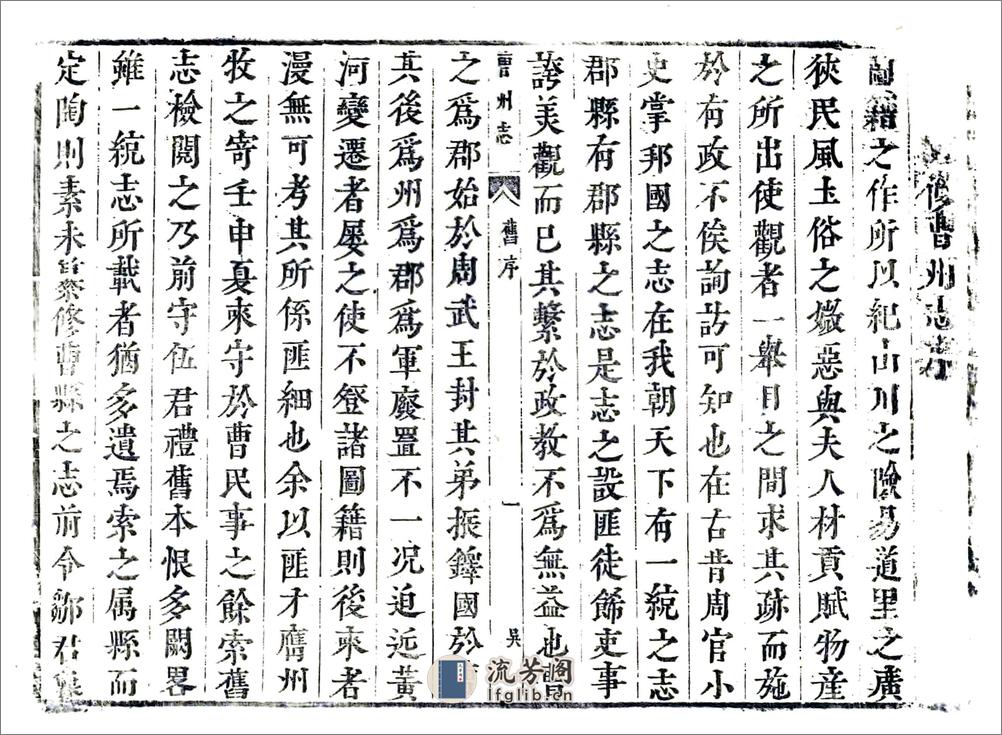 修曹州志序
圖籍之作所以紀山川之險易道里之廣
狹民風土俗之媺惡與夫人材貢賦物産
之所出使觀者一舉目之間求其疏而施
於有政不俟詢訪可知也在古昔周官小
史掌邦國之志在我朝天下有一統之志
郡縣有郡縣之志是志之設匪徒餙吏事
誇美觀而已其繫於政教不爲無益也
曹州志
舊序
一
吳
之爲郡始於周武王封其弟振鐸國於
其後爲州爲郡爲軍廢置不一况迫近黃
河變遷者屡之使不登諸圖籍則後來者
漫無可考其所係匪細也余以匪才膺州
牧之寄壬申夏來守於曹民事之餘索舊
志檢閱之乃前守伍君禮舊本恨多闕畧
雖一統志所載者猶多遺焉索之属縣而
定陶則素未修曹縣之志前令鄒君
流芳閣
lfglib.cn